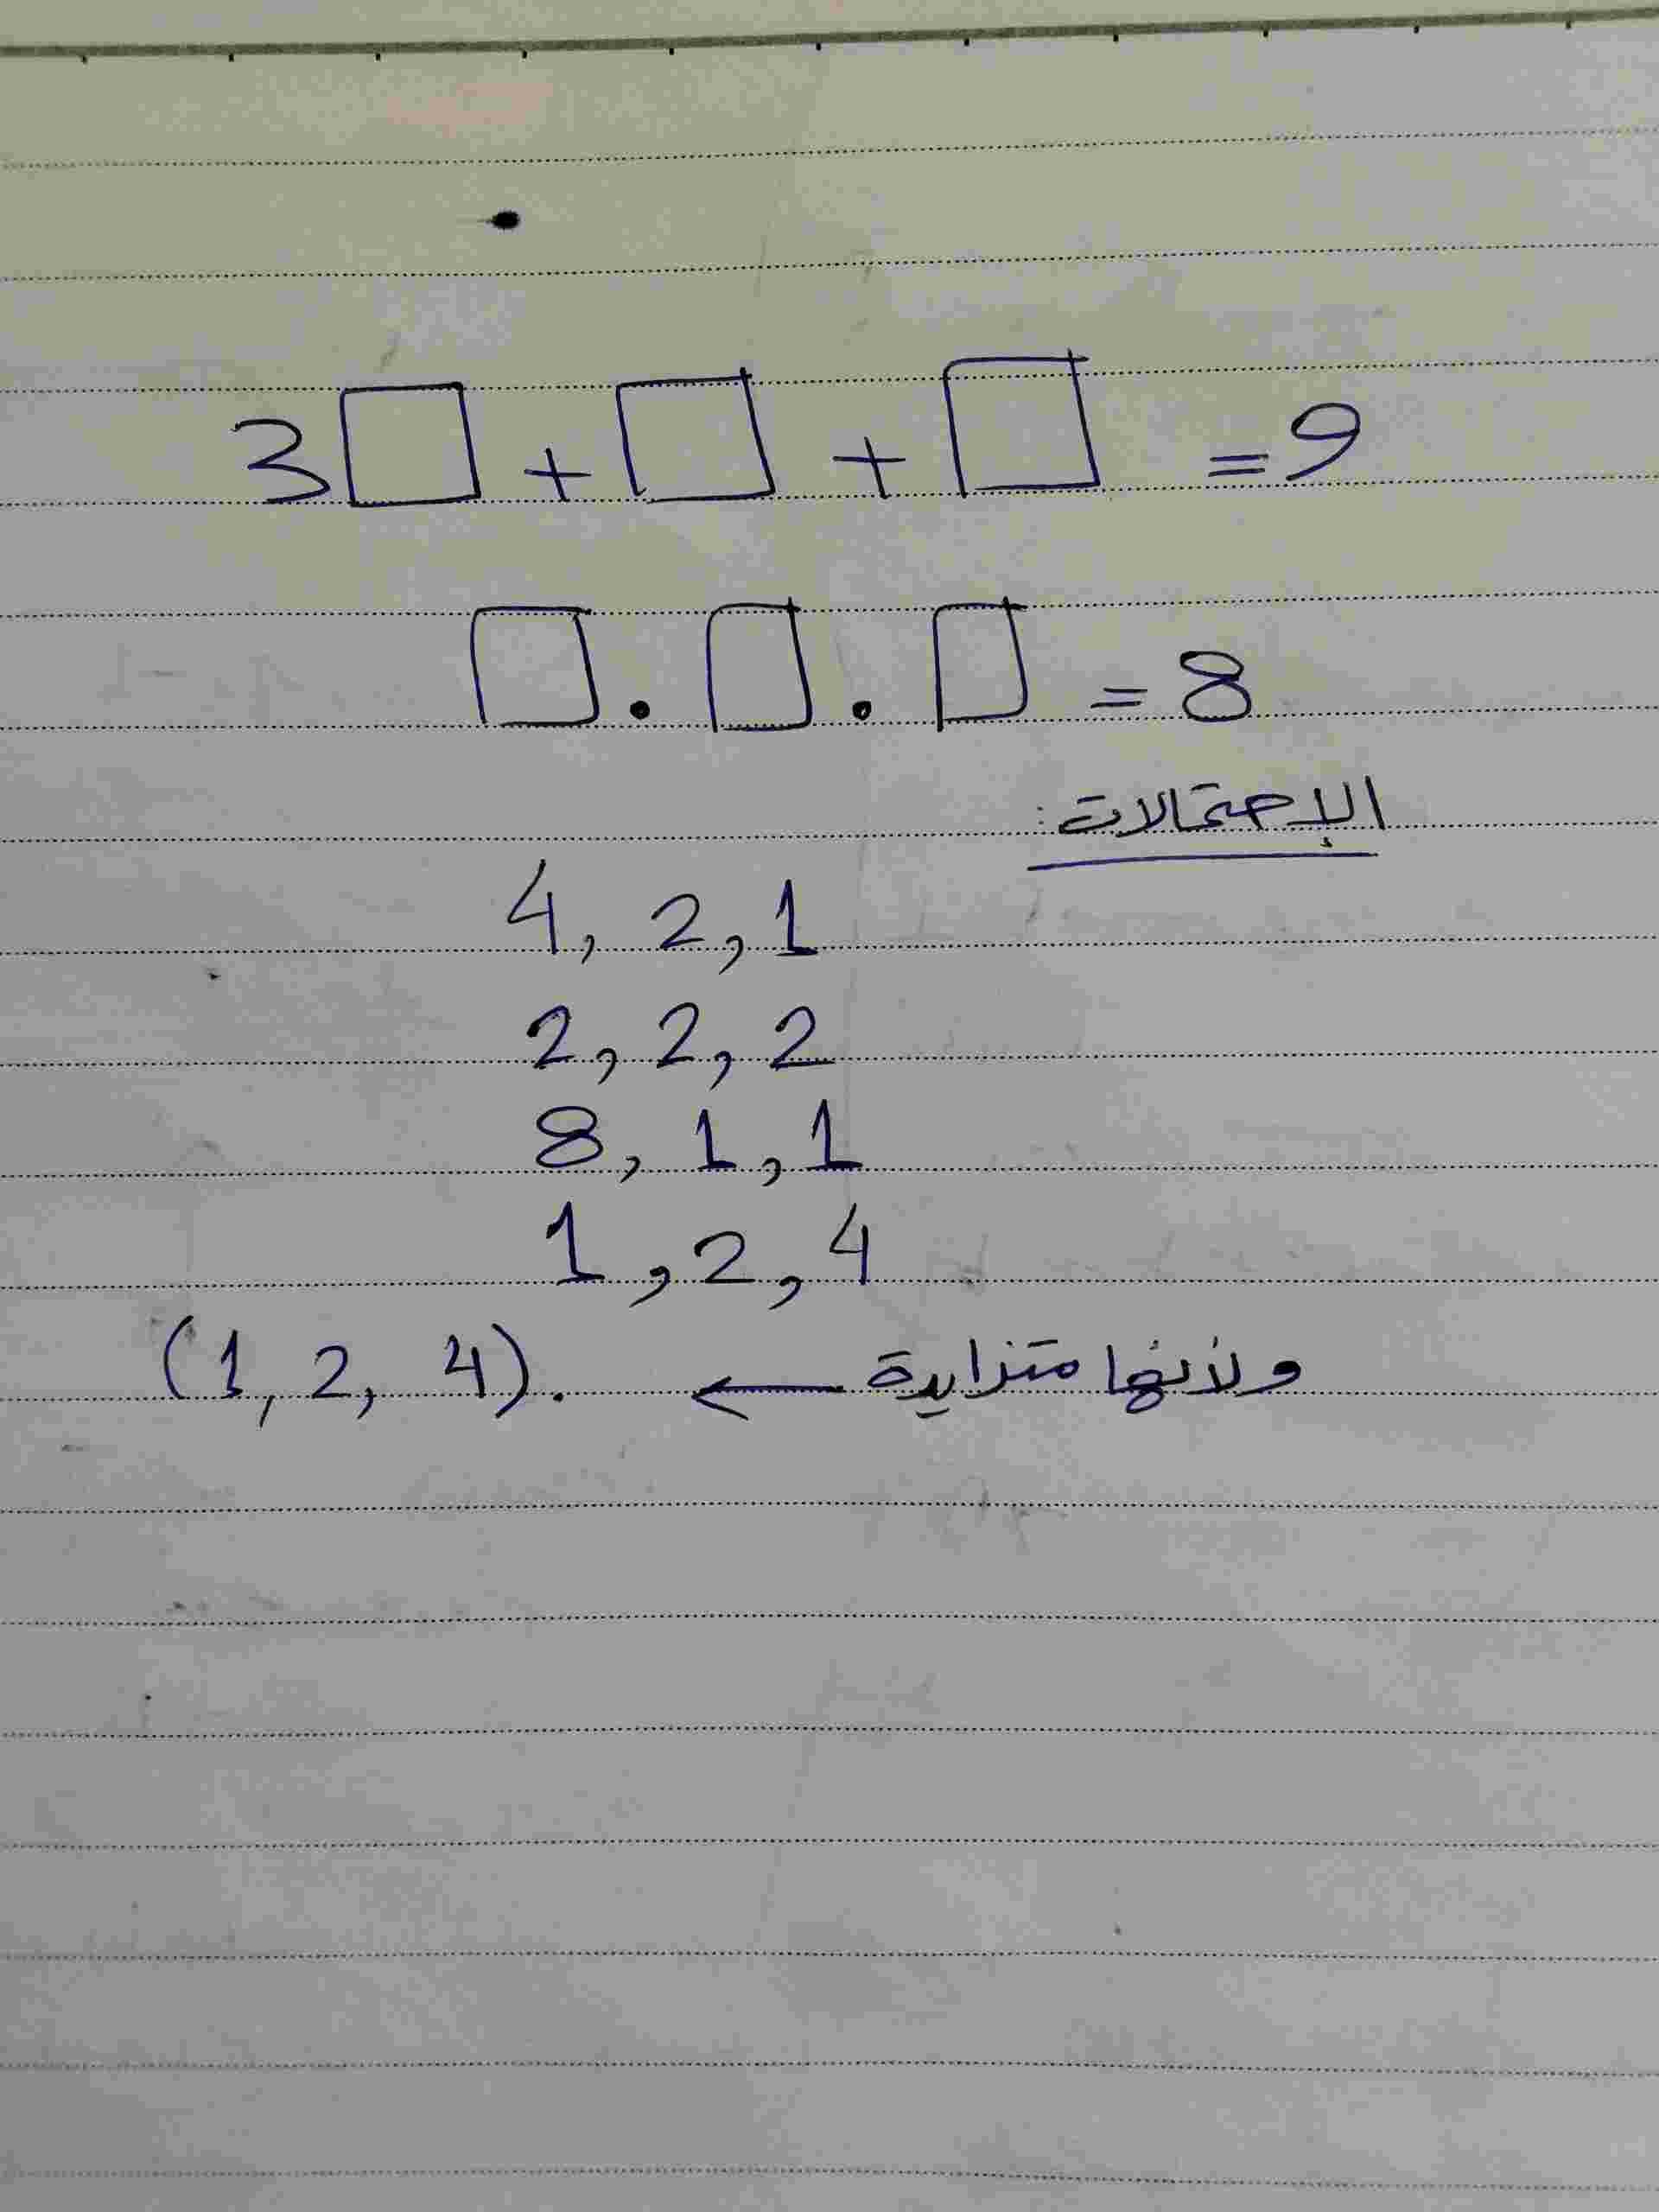 3□ + □ + □ = 9
□ . □ . □ = 8
الإحتمالات:
4, 2, 1
2, 2, 2
8, 1, 1
1, 2, 4
ولأنها متزايدة ← (1, 2, 4).